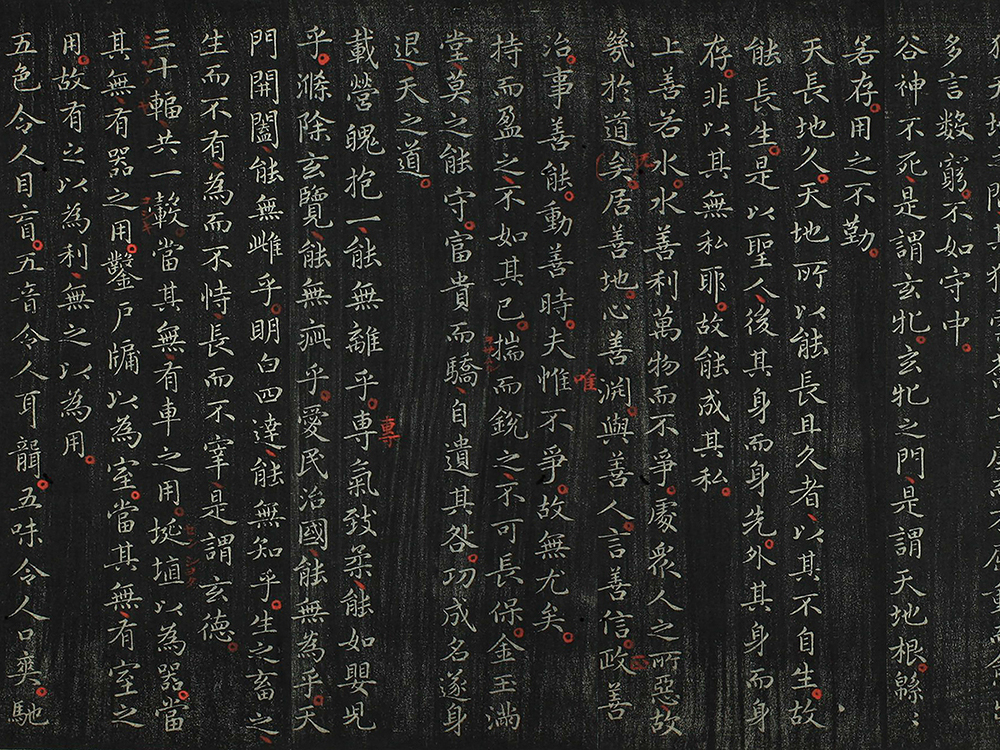 多言数窮。不如守中。
谷神不死、是謂玄牝。玄牝之門、是謂天地根。緜〻
若存。用之不勤。
天長地久。天地所以能長且久者、以其不自生。故
能長生。是以聖人、後其身而身先。外其身而身
存。非以其無私耶。故能成其私。
上善若水。水善利萬物而不爭。處衆人之所惡、故
幾於道矣。居善地。心善渊。與善人。言善信。政善
治。事善能。動善時。夫惟不爭。故無尤矣。
唯
持而盈之、不如其已。揣而銳之、不可長保。金玉滿
堂、莫之能守。富貴而驕、自遺其咎。功成名遂身
退、天之道。
専
載營魄抱一、能無離乎。専氣致柔、能如嬰児
乎。滌除玄覽、能無疵乎。愛民治國、能無為乎。天
門開闔、能無雌乎。明白四達、能無知乎。生之畜之、
生而不有、為而不恃、長而不宰、是謂玄德。
三十輻、共一轂。當其無、有車之用。埏埴以為器。當
其無、有器之用。鑿戸牖以為室。當其無、有室之
用。故有之以為利、無之以為用。
五色令人目盲。五音令人耳聾。五味令人口爽。馳